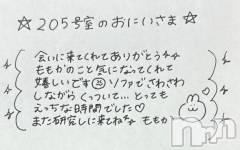 ☆ 205号室のおにいさま ☆
会いに来てくれてありがとう
ももかのこと気になってくれて
嬉しいです ソファでさわさわ
しながら くっついて…とても
えっちな時間でした♡
また研究しに来てねな ももか